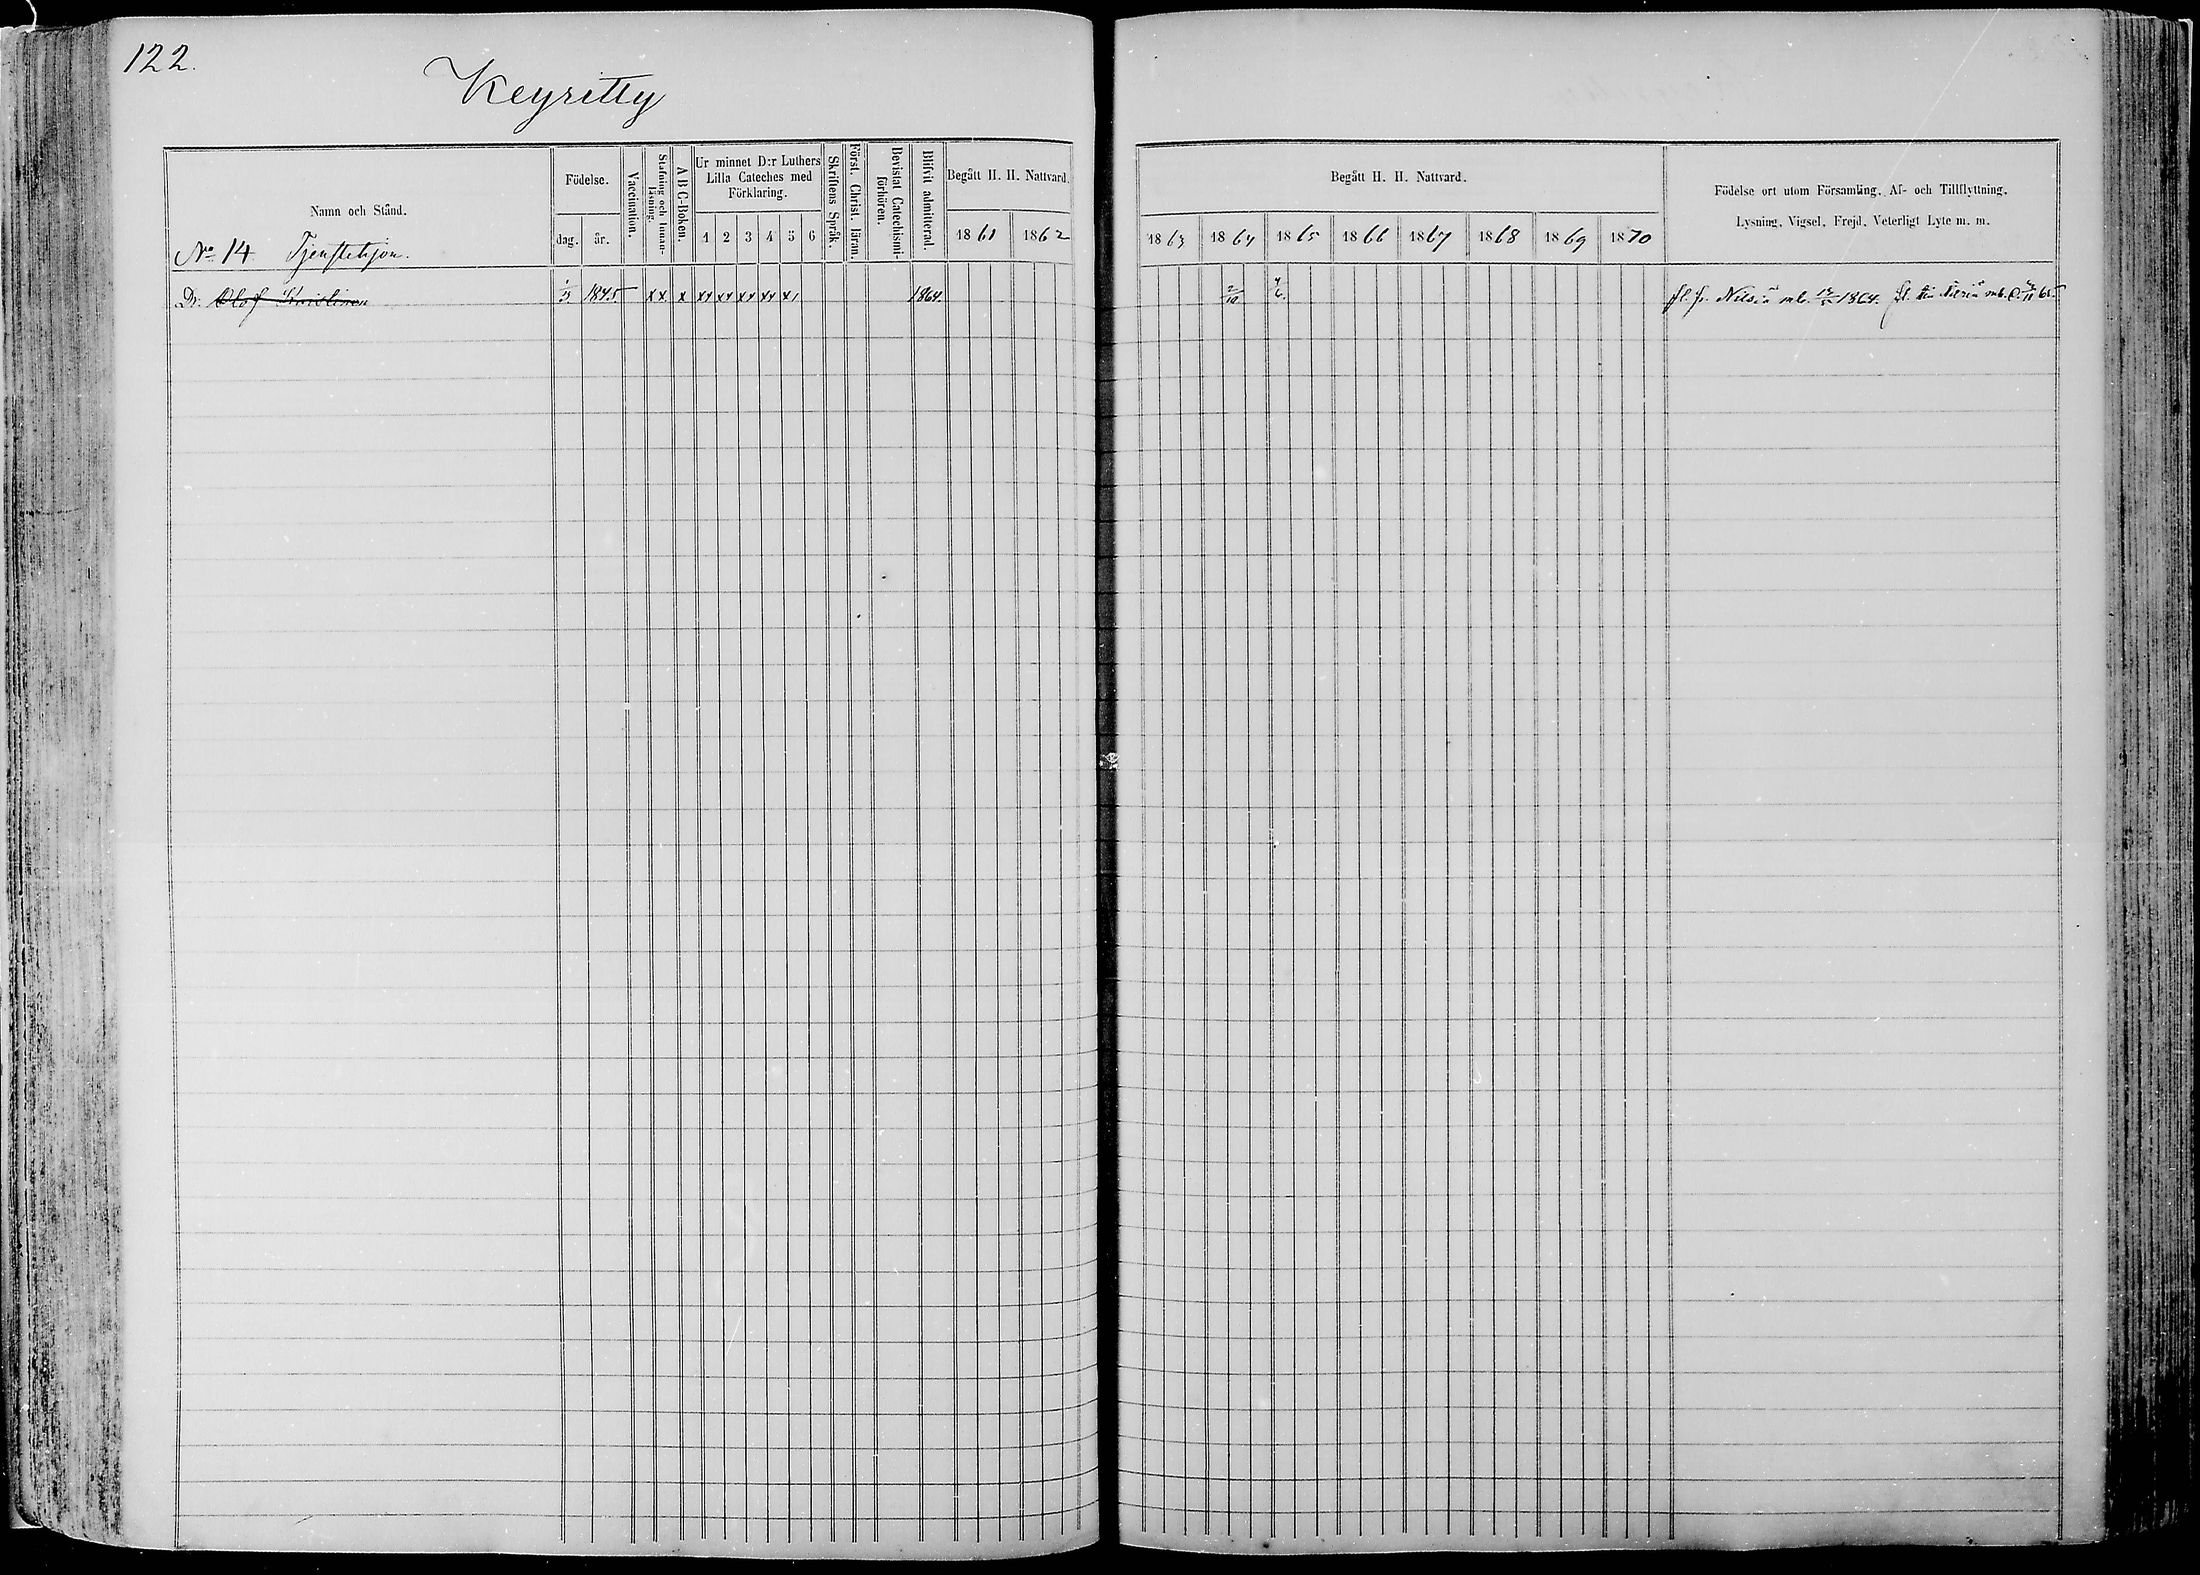 122.
Keyritty
Namn och Stånd.
Födelse.
dag.
år.
Vaccination.
Stafning och Innan-
läsning.
A B C-Boken.
Ur minnet D:r Luthers
Lilla Cateches med
Förklaring.
1 2 3 4 5 6
Skriftens Språk.
Först. Christ. läran.
Bevistat Catechismi-
förhören.
Blifvit admitterad.
Begått H. H. Nattvard.
1861 1862
No 14 Tjenstehjon.
Dr. Olof
1845 xx x xx xx xx xx x1 1864
Begått H. H. Nattvard.
1863 1864 1865 1866 1867 1868 1869 1870
Födelse ort utom Församling, Af- och Tillflyttning,
Lysning, Vigsel, Frejd, Veterligt Lyte m. m.
2/10 4/6
fl. fr. Nilsiä mb. 1864. fl. till Nilsiä mb. 65.